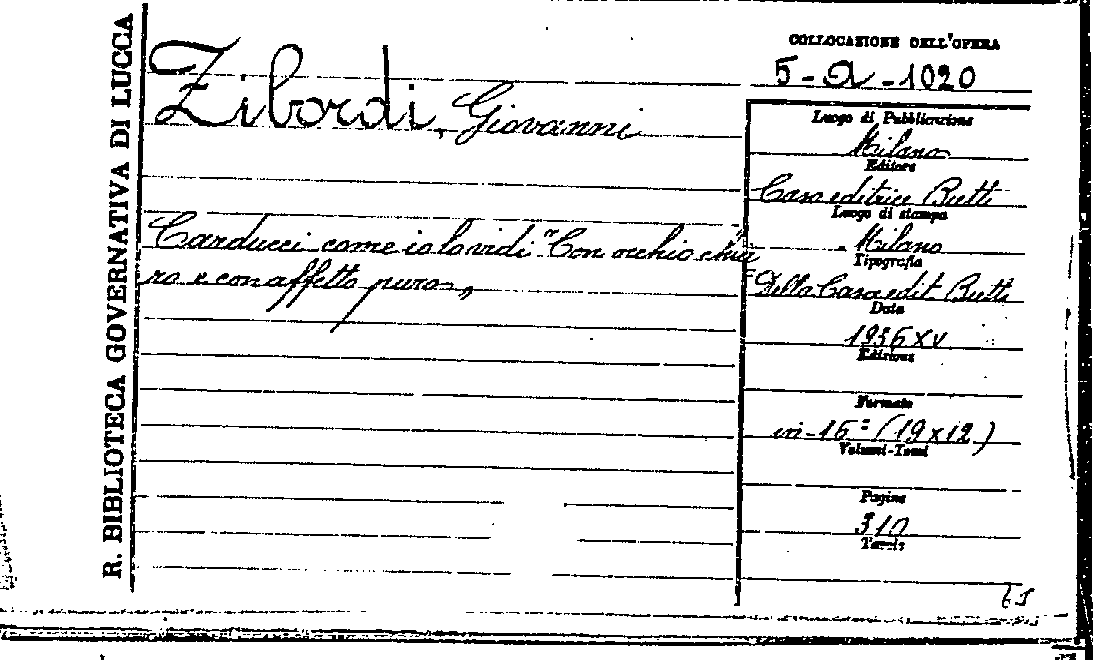 R. BIBLIOTECA GOVERNATIVA DI LUCCA
COLLOCAZIONE DELL'OPERA
5-a-1020
Zibordi, Giovanni
Luogo di Pubblicazione
Milano
Editore
Casa editrice Bietti
Luogo di stampa
Milano
Tipografia
Della Casa edit. Bietti
Data
1936 XV
Edizione
Formato
in-16º (19x12)
Volumi-Tomi
Pagine
310
Tavole
Carducci come io lo vidi "Con occhio chia=
ro e con affetto puro„